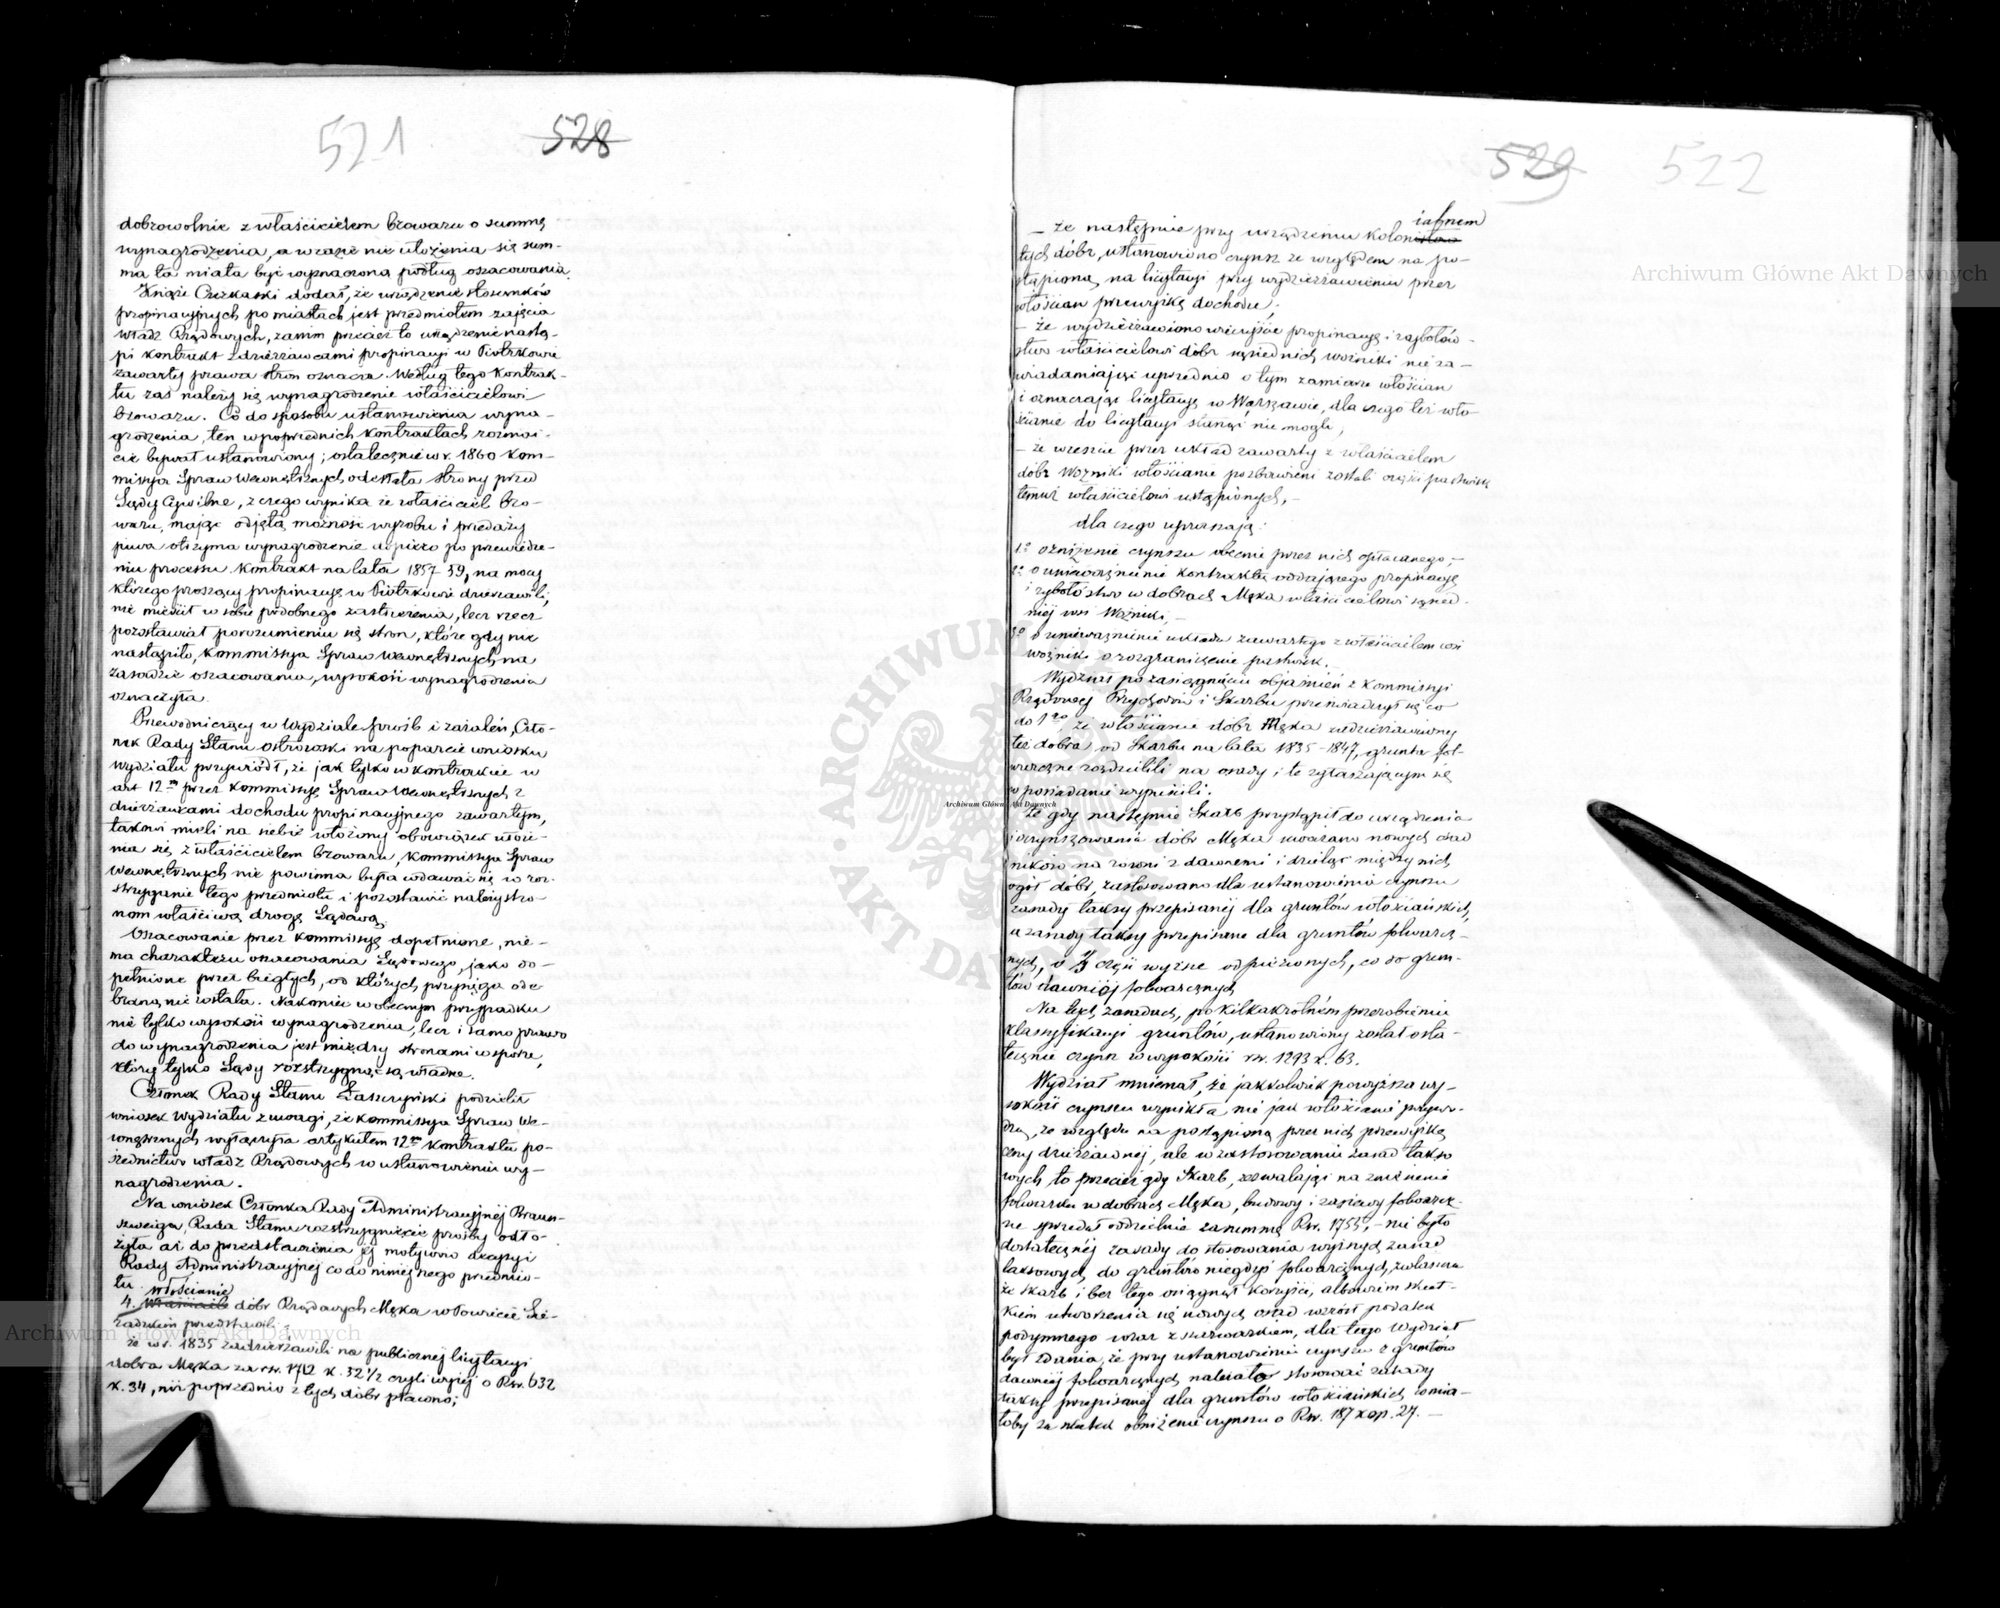 521 528
dobrowolnie z właścicielem browaru o summę
wynagrodzenia, a w razie nie ułożenia się sum-
ma ta miała być wyznaczoną podług oszacowania.
Xiąże Czetkaski dodał, że urządzenie stosunków
propinacyjnych po miastach jest przedmiotem zajęcia
Władz Rządowych, zanim przecież to urządzenie nastą-
pi kontrakt z dzierżawcami propinacyi w Piotrkowie
zawarty prawa stron oznacza. Według tego kontrak-
tu zaś należy się wynagrodzenie właścicielowi
browaru. Co do sposobu ustanowienia wyna-
grodzenia, ten w poprzednich kontraktach rozmai-
cie bywał ustanowiony; ostatecznie w r. 1860 Kom-
missya Spraw Wewnętrznych odesłała strony przed
Sądy Cywilne, z czego wynika że właściciel bro-
waru, mając odjętą możność wyrobu i przedaży
piwa otrzyma wynagrodzenie dopiéro po przewiedze-
niu processu. Kontrakt na lata 1857-59, na mocy
którego proszący propinacyę w Piotrkowie dzierżawili,
nie mieścił w sobie podobnego zastrzeżenia, lecz rzecz
pozostawiał porozumieniu się stron, które gdy nie
nastąpiło, Kommissya Spraw Wewnętrznych na
zasadzie oszacowania, wysokość wynagrodzenia
oznaczyła.
Przewodniczący w Wydziale próśb i zażaleń, Czło-
nek Rady Stanu Ostrowski na poparcie wniosku
Wydziału przywiódł, że jak tylko w kontrakcie w
art 12m przez Kommissyę Spraw Wewnętrznych z
dzierżawcami dochodu propinacyjnego zawartym,
takowi mieli na siebie włożony obowiązek ułoże-
nia się z właścicielem browaru, Kommissya Spraw
Wewnętrznych nie powinna była wdawać się w roz-
strzyganie tego przedmiotu i pozostawić należy stro-
nom właściwą drogę Sądową.
Oszacowanie przez Kommissyę dopełnione, nie-
ma charakteru oszacowania Sądowego, jako do-
pełnione przez biegłych, od których przysięga ode-
braną nie została. Nakoniec w obecnym przypadku
nie tylko wysokość wynagrodzenia, lecz i samo prawo
do wynagrodzenia jest między stronami w sporze,
który tylko Sądy rozstrzygnąć są władne.
Członek Rady Stanu Łaszczyński podzielił
wniosek Wydziału z uwagi, że Kommissya Spraw We-
wnętrznych wyłączyła artykułem 12m Kontraktu po-
średnictwo władz Rządowych w ustanowieniu wy-
nagrodzenia.
Na wniosek Członka Rady Administracyjnéj Braun-
szweiga, Rada Stanu rozstrzygnięcie prośby odło-
żyła aż do przedstawienia jéj motywów decyzyi
Rady Administracyjnéj co do niniejszego przedmio-
tu. włościanie
4. Właściciele dóbr Rządowych Męka w Powiecie Sie-
radzkim przedstawili:
że w r. 1835 zadzierżawili na publicznéj licytacyi
dobra Męka za rsr. 1712 k. 32 1/2 czyli więcéj o Rsr. 632
k. 34, niż poprzednio z tych dóbr płacono;
529 522
iałnem
— że następnie przy urządzeniu kolonistów
tych dóbr, ustanowiono czynsz ze względem na po-
stąpioną na licytacyi przy wydzierżawieniu przez
włościan przewyżkę dochodu;
— że wydzierżawiono wieczyście propinacyę i rybołów-
stwo właścicielowi dóbr sąsiednich Woźniki nie za-
wiadamiając uprzednio o tym zamiarze włościan
i oznaczając licytacyę w Warszawie, dla czego też wło-
ścianie do licytacyi stanąć nie mogli;
— że wreszcie przez układ zawarty z właścicielem
dóbr Woźniki włościanie pozbawieni zostali części pastwisk
temuż właścicielowi ustąpionych,—
dla czego upraszają:
1o o zniżenie czynszu obecnie przez nich opłacanego;—
2o o unieważnienie kontraktu oddającego propinacyę
i rybołóstwo w dobrach Męka właścicielowi sąsied-
niéj wsi Woźniki,—
3o o unieważnienie układu zawartego z właścicielem wsi
Woźniki o rozgraniczenie pastwisk.
Wydział po zasiągnięciu objaśnień z Kommissyi
Rządowéj Przychodów i Skarbu przeświadczył się co
do 1go, że włościanie dóbr Męka zadzierżawiwszy
też dobra, od Skarbu na lata 1835-1847, grunta fol-
warczne rozdzielili na osady i te zgłaszającym się
w posiadanie wypuścili.
Że gdy następnie Skarb przystąpił do urządzenia
i oczynszowania dóbr Męka uważano nowych osad
ników na równi z dawnemi i dzieląc między nich
ogół dóbr, zastosowano dla ustanowienia czynszu
zasady taksy przepisanéj dla gruntów włościańskich,
a zasady taksy przepisane dla gruntów folwarcz-
nych, o ⅓ części wyższe od pierwszych, co do grun-
tów dawniéj folwarcznych
Na tych zasadach, po kilkakrotném przerobieniu
klassyfikacyi gruntów, ustanowiony został osta-
tecznie czynsz w wysokości rsr. 1293 k. 63.
Wydział mniemał, że jakkolwiek powyższa wy-
sokość czynszu wynikła nie jak włościanie przywo-
dzą, ze względu na postąpioną przez nich przewyżkę
ceny dzierżawnéj, ale w zastosowaniu zasad takso-
wych to przecież gdy Skarb, zezwalając na zniesienie
folwarku w dobrach Męka, budowy i zasiewy folwarcz-
ne sprzedał oddzielnie za summę Rsr. 1755,— nie było
dostatecznéj zasady do stosowania wyższych zasad
taksowych do gruntów niegdyś folwarcznych, zwłaszcza
że Skarb i bez tego osiągnął korzyści, albowiem skut-
kiem utworzenia się nowych osad wzrósł podatek
podymnego wraz z szarwarkiem, dla tego Wydział
był zdania, że przy ustanowieniu czynszu z gruntów
dawniéj folwarcznych należało stosować zasady
taksy przepisanéj dla gruntów włościańskich, comia-
łoby za skutek obniżenie czynszu o Rsr. 187 kop. 27.—
Archiwum Główne Akt Dawnych
Archiwum Główne Akt Dawnych
Archiwum Główne Akt Dawnych
ARCHIWUM AKT DAW